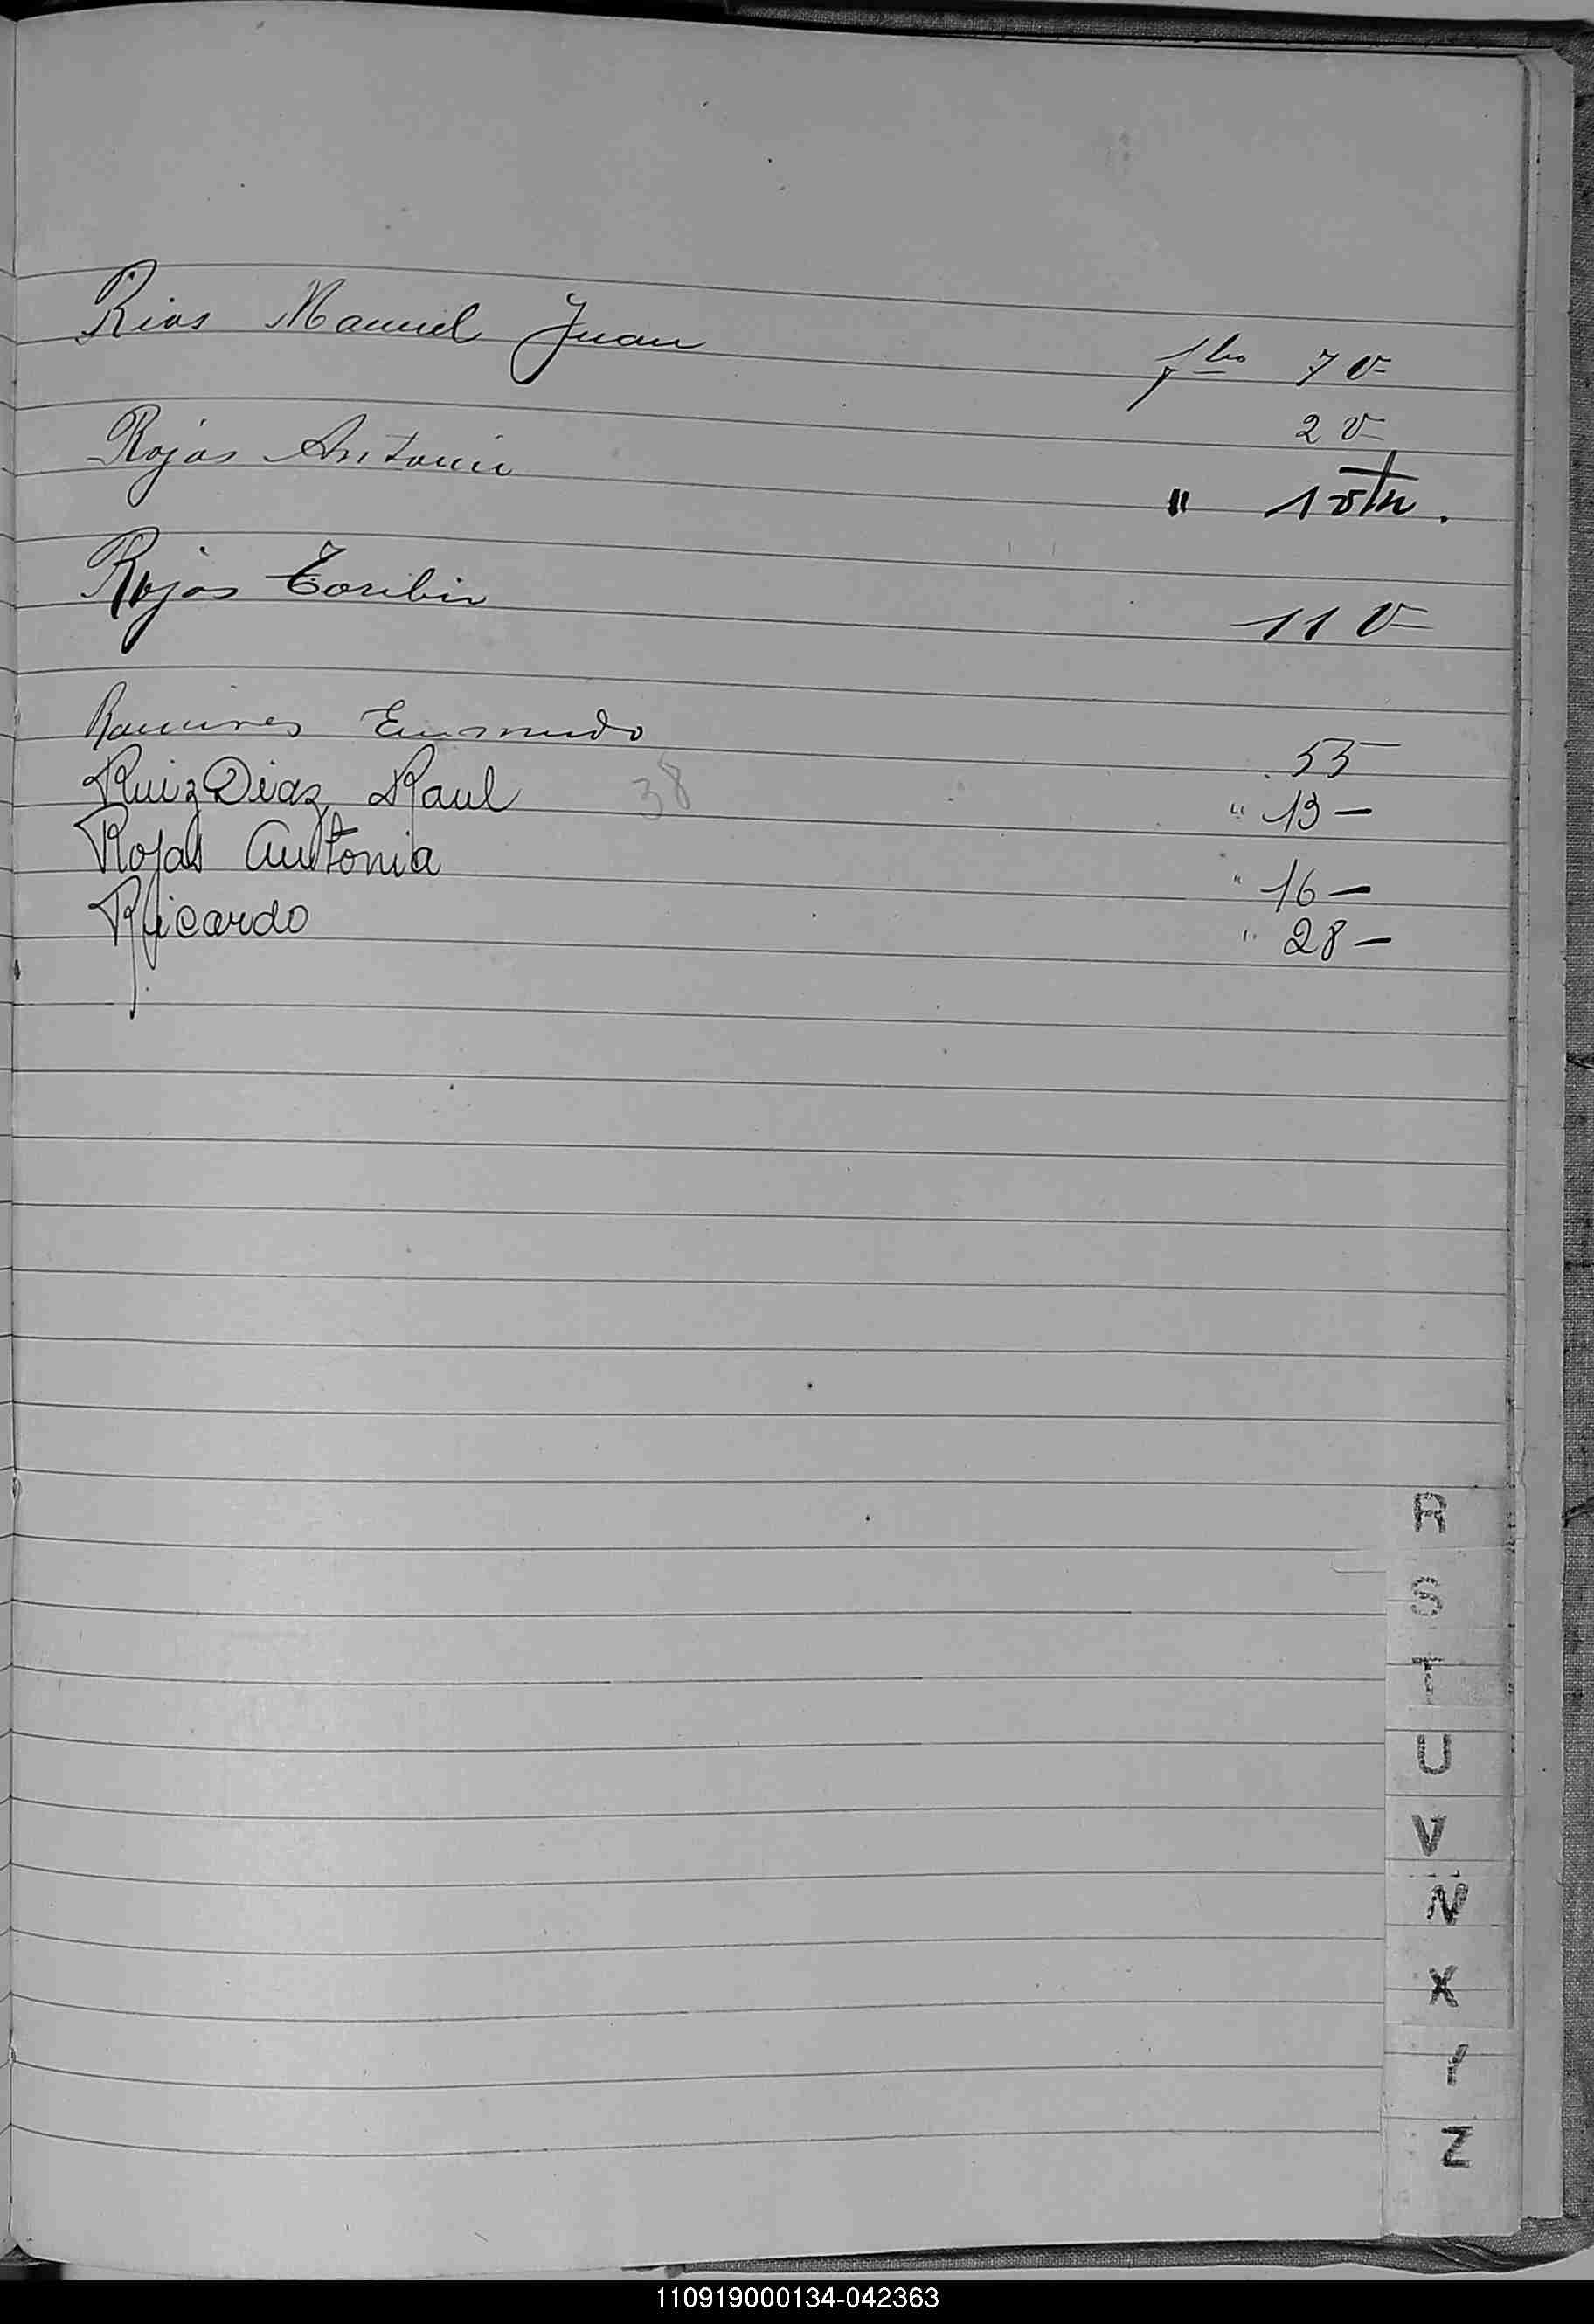 Rios Manuel Juan flio 7 v
2 v
Rojas Antonio " 1
Rojas Toribio 11 v
Ramires 55
Ruiz Diaz Raul 38 " 13 —
Rojas Antonia " 16 —
Ricardo " 28 —
R
S
T
U
V
X
Y
Z
110919000134-042363